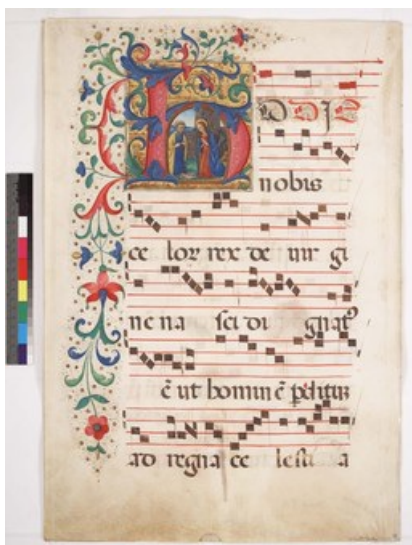 H ODIE
nobis
ce loꝝ rex de uir gi
ne na sci di gnatꝰ
ē ut homin ē ꝑditū
ad regna ce lesti a